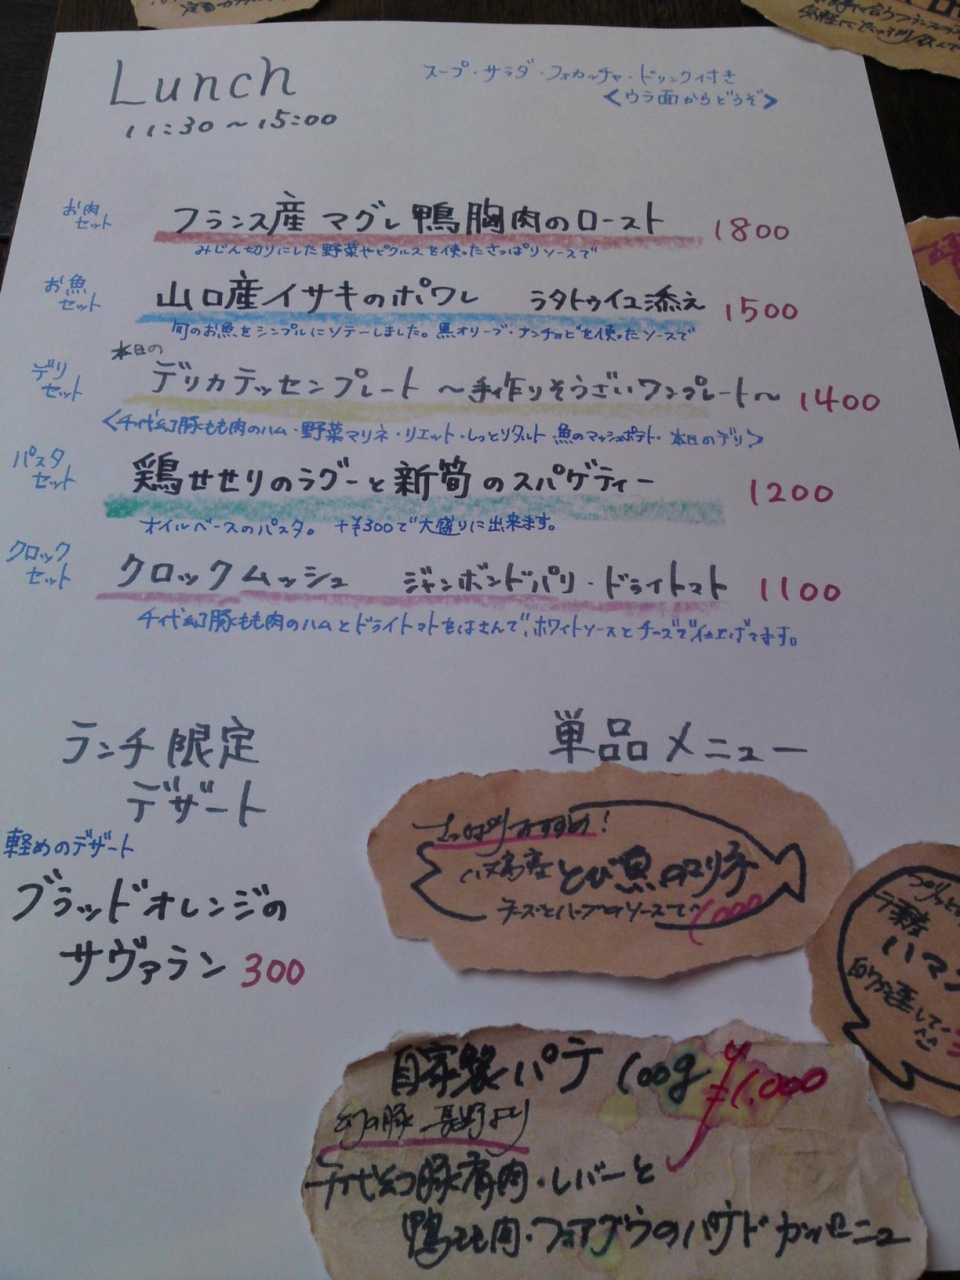 Lunch
11:30～15:00
スープ・サラダ・フォカッチャ・ドリンク付き
<ウラ面からどうぞ>
お肉セット
フランス産 マグレ鴨胸肉のロースト 1800
みじん切りにした野菜やピクルスを使ったさっぱりソースで
お魚セット
山口産イサキのポワレ ラタトゥイユ添え 1500
旬のお魚をシンプルにソテーしました。黒オリーブ・アンチョビを使ったソースで
本日の
デリセット
デリカテッセンプレート ～手作りそうざいワンプレート～ 1400
<千代幻豚もも肉のハム・野菜マリネ・リエット・しっとりタルト 魚のマッシュポテト・本日のデリ>
パスタセット
鶏せせりのラグーと新筍のスパゲティー 1200
オイルベースのパスタ。 +¥300で大盛りに出来ます。
クロックセット
クロックムッシュ ジャンボンドパリ・ドライトマト 1100
千代幻豚もも肉のハムとドライトマトをはさんで、ホワイトソースとチーズで仕上げてます。
ランチ限定
デザート
軽めのデザート
ブラッドオレンジの
サヴァラン 300
単品メニュー
さっぱりおすすめ!
とび魚
チーズとハーブのソースで 1,000
自家製パテ 100g ¥1,000
幻の豚 長野より
千代幻豚肩肉・レバーと
鴨もも肉・フォアグラのパテ ド カンパーニュ